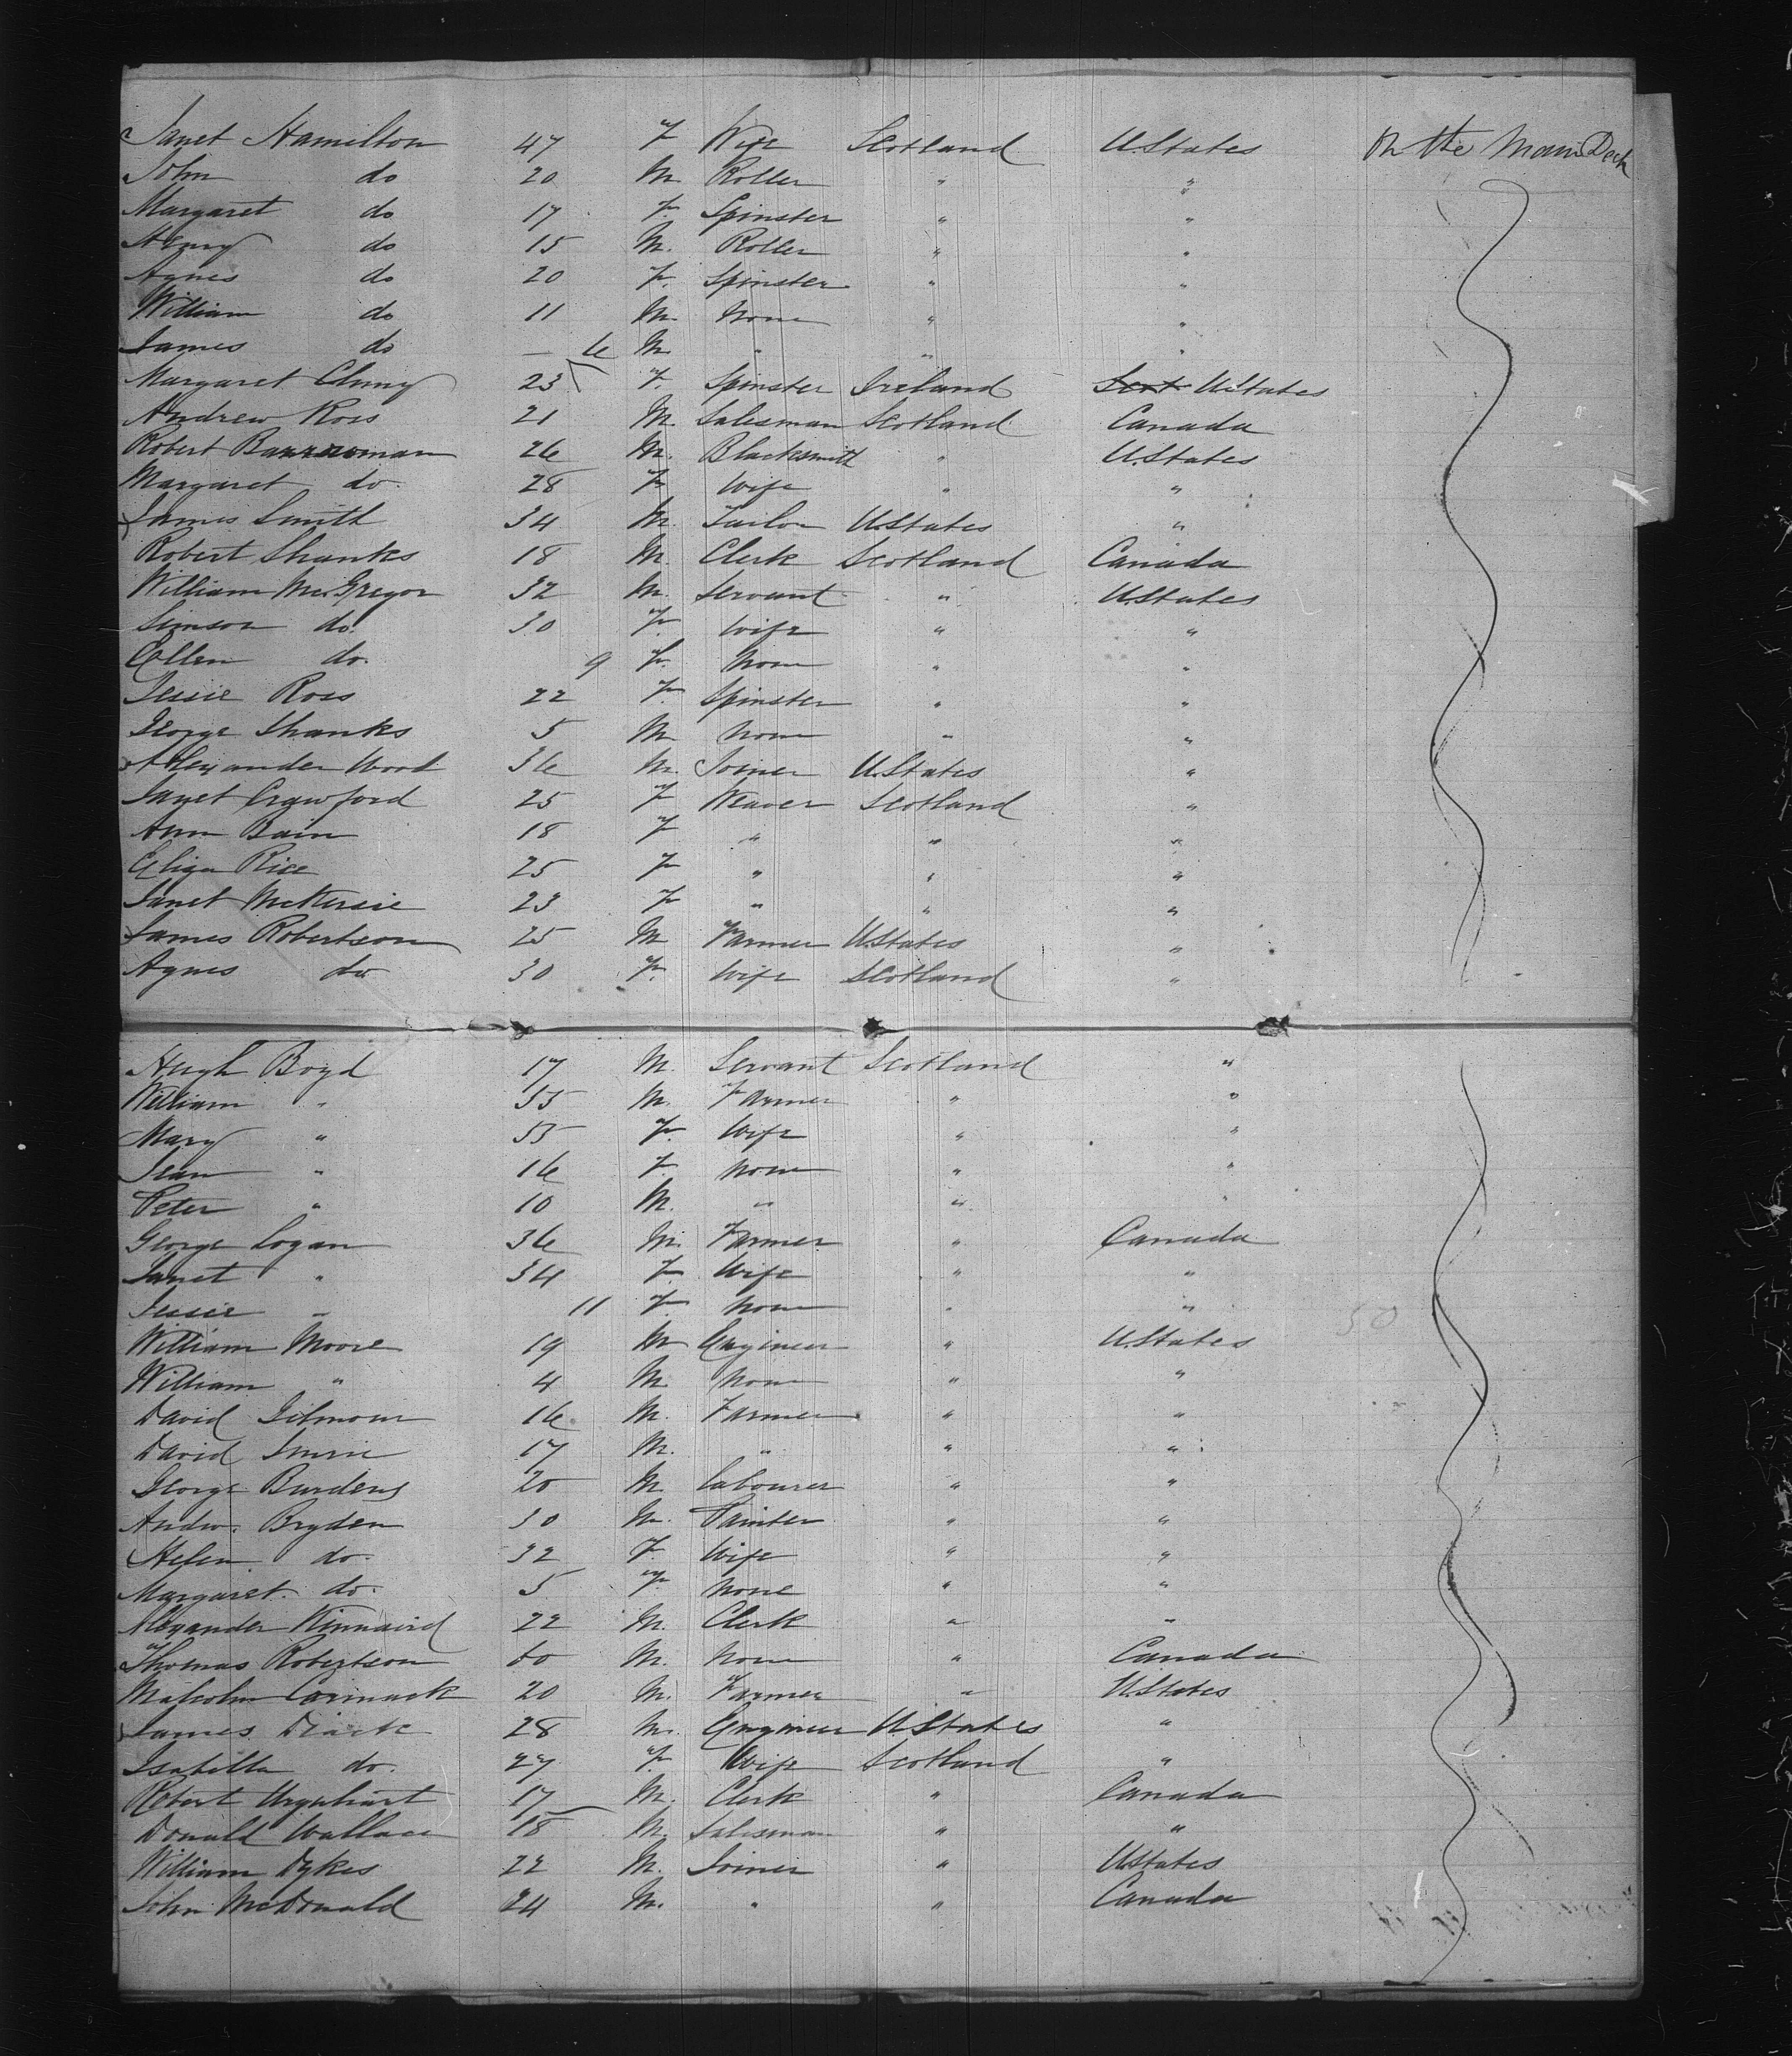 Janet Hamilton 47 F Wife Scotland U.States On the Main Deck
John do 20 M Roller " "
Margaret do 17 F. Spinster " "
Henry do 15 M. Roller " "
Agnes do 20 F. Spinster " "
William do 11 M. None " "
James do — 6 M " " "
Margaret Cluny 23 F. Spinster Ireland Scot U.States
Andrew Ross 21 M. Salesman Scotland Canada
Robert 26 M. Blacksmith " U.States
Margaret do. 28 F Wife " "
James Smith 34 M. Tailor U.States "
Robert Shanks 18 M. Clerk Scotland Canada
William McGregor 32 M. Servant " U.States
Simson do. 30 F. Wife " "
Ellen do. 9 F. None " "
Jessie Ross 22 F. Spinster " "
George Shanks 5 M None " "
Alexander Wood 36 M. Joiner U.States "
Janet Crawford 25 F Weaver Scotland "
Ann Bain 18 F " " "
Eliza Rice 25 F " " "
Janet McKersie 23 F " " "
James Robertson 25 M Farmer U.States "
Agnes do 30 F. Wife Scotland "
Hugh Boyd 17 M. Servant Scotland "
William " 55 M. Farmer " "
Mary " 55 F. Wife " "
Jean " 16 F. None " "
Peter " 10 M. " " "
George Logan 36 M. Farmer " Canada
Janet " 34 F. Wife " "
Jessie " 11 F. None " " 50
William Moore 19 M Engineer " U.States
William " 4 M None " "
David Gilmour 16 M. Farmer " "
David Imrie 17 M. " " "
George Burdens 20 M. Labourer " "
Andw. Bryden 30 M. Painter " "
Helen do. 32 F. Wife " "
Margaret. do. 5 F. None " "
Alexander Kinnaird 22 M. Clerk " "
Thomas Robertson 60 M. None " Canada
Malcolm Cormack 20 M. Farmer " U.States
James Diack 28 M. Engineer U.States "
Isabella do. 27 F. Wife Scotland "
Robert Urquhart 17 M. Clerk " Canada
Donald Wallace 18 M. Salesman " "
William Dykes 22 M. Joiner " U.States
John McDonald 24 M. " " Canada